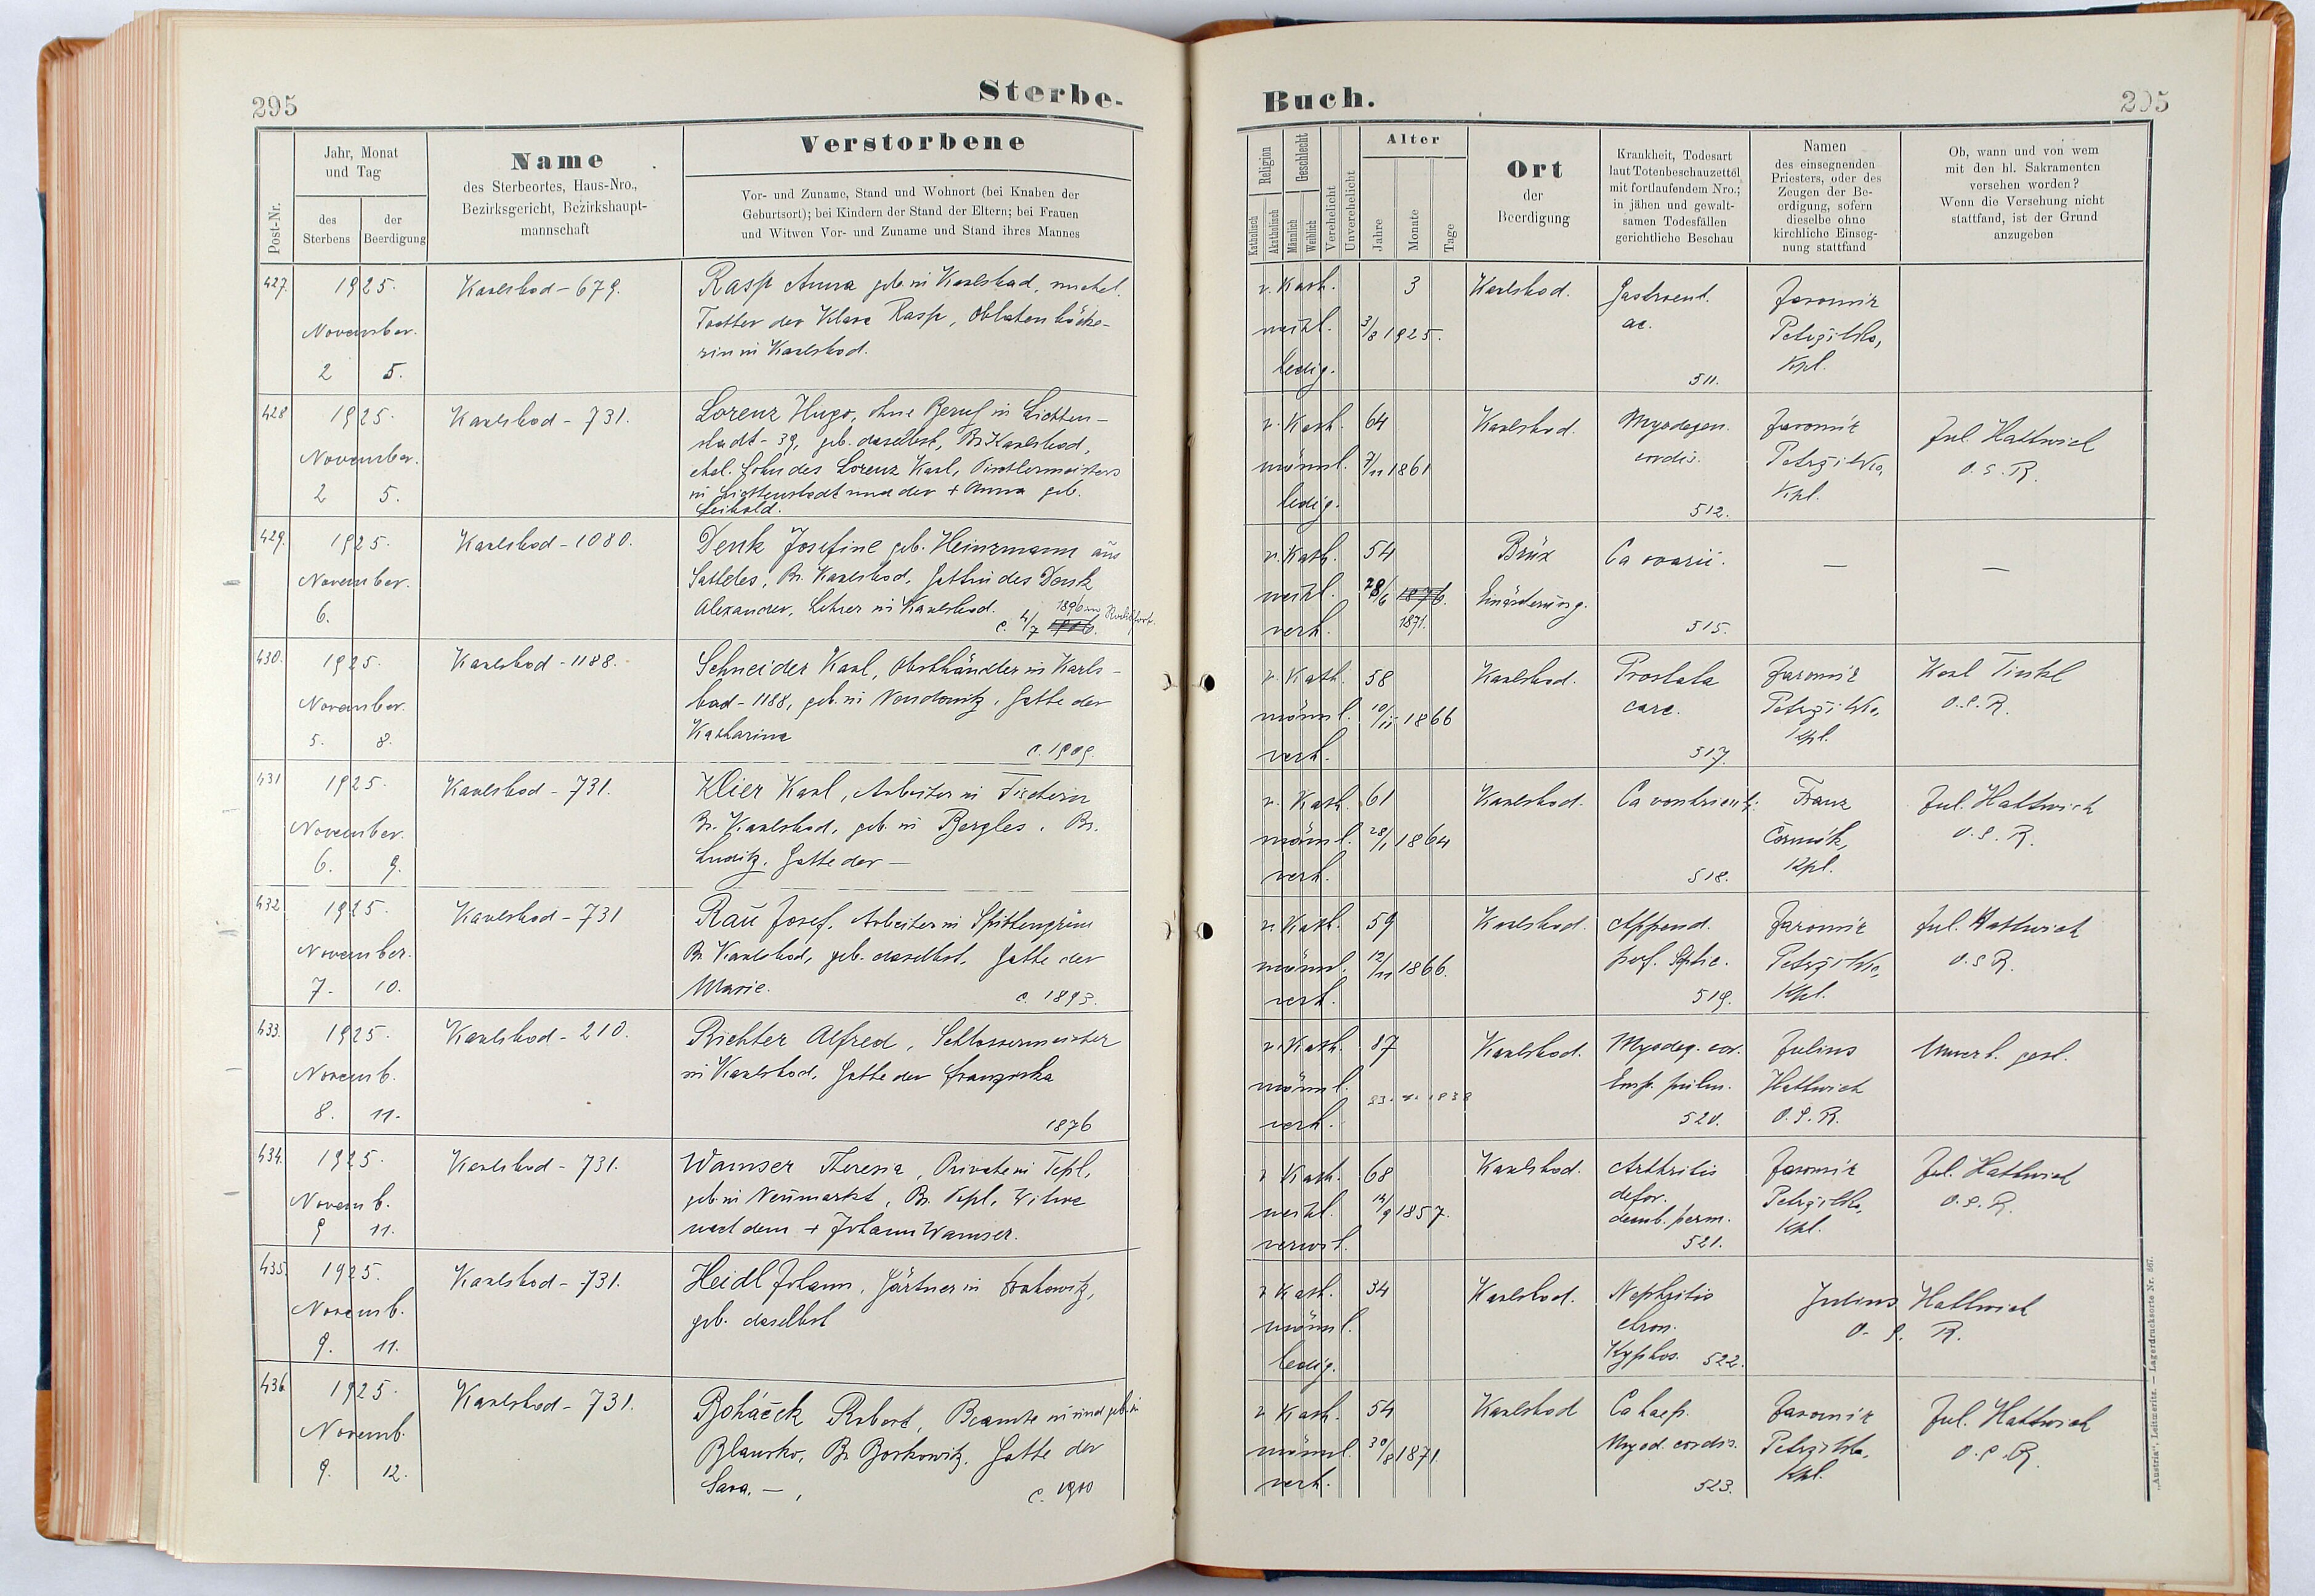 295
Sterbe-
Post-Nr.
Jahr, Monat
und Tag
des
Sterbens
der
Beerdigung
Name
des Sterbeortes, Haus-Nro.,
Bezirksgericht, Bezirkshaupt-
mannschaft
Verstorbene
Vor- und Zuname, Stand und Wohnort (bei Knaben der
Geburtsort); bei Kindern der Stand der Eltern; bei Frauen
und Witwen Vor- und Zuname und Stand ihres Mannes
427.
1925.
November.
2 5.
Karlsbad - 679.
Rasp Anna geb. in Karlsbad, unehel.
Tochter der Klara Rasp, Oblatenbäcke-
rin in Karlsbad.
428
1925.
November.
2 5.
Karlsbad - 731.
Lorenz Hugo, ohne Beruf in Lichten-
stadt - 39, geb. daselbst, Bz. Karlsbad,
ehel. Sohn des Lorenz Karl, Tischlermeisters
in Lichtenstadt und der + Anna geb.
429.
1925.
November.
6.
Karlsbad - 1080.
Denk Josefine geb. Heinzmann aus
Sattles, Bz. Karlsbad, Gattin des Denk
Alexander, Lehrer in Karlsbad.
1896 in
c. 4/7
430.
1925.
November.
5. 8.
Karlsbad - 1188.
Schneider Karl, Obsthändler in Karls-
bad - 1188, geb. in, Gatte der
Katharina
c. 1909.
431
1925.
November.
6. 9.
Karlsbad - 731.
Klier Karl, Arbeiter in Fischern
Bz. Karlsbad, geb. in Bergles, Bz.
Luditz. Gatte der —
432
1925.
November.
7. 10.
Karlsbad - 731
Rau Josef, Arbeiter in Spittengrün
Bz Karlsbad, geb. daselbst, Gatte der
Marie.
c. 1893.
433.
1925.
Novemb.
8. 11.
Karlsbad - 210.
Richter Alfred, Schlossermeister
in Karlsbad, Gatte der Franziska
1876
434.
1925.
Novemb.
9 11.
Karlsbad - 731.
Wamser Theresia, Private in Tepl,
geb. in Neumarkt, Bz. Tepl, Witwe
nach dem + Johann Wamser.
435.
1925.
Novemb.
9. 11.
Karlsbad - 731.
Heidl Johann, Gärtner in,
geb. daselbst
436
1925.
Novemb.
9. 12.
Karlsbad - 731.
Boháček Robert, Beamte in und geb. in
Blansko, Bz Boskowitz, Gatte der
Sara. —
c. 1910
Buch.
295
Religion
Katholisch
Akatholisch
Geschlecht
Männlich
Weiblich
Verehelicht
Unverehelicht
Alter
Jahre
Monate
Tage
Ort
der
Beerdigung
Krankheit, Todesart
laut Totenbeschauzettel
mit fortlaufendem Nro.;
in jähen und gewalt-
samen Todesfällen
gerichtliche Beschau
Namen
des einsegnenden
Priesters, oder des
Zeugen der Be-
erdigung, sofern
dieselbe ohne
kirchliche Einseg-
nung stattfand
Ob, wann und von wem
mit den hl. Sakramenten
versehen worden?
Wenn die Versehung nicht
stattfand, ist der Grund
anzugeben
r. Kath.
weibl.
ledig.
3
3/8 1925.
Karlsbad.
Gastroent.
ac.
511.
Jaromir
Petrzilka,
Kpl.
r. Kath.
männl.
ledig.
64
7/11 1861
Karlsbad.
Myodegen.
cordis.
512.
Jaromir
Petrzilka,
Kpl.
Jul. Hattwich
O.S.R.
r. Kath.
weibl.
verh.
54
28/6 1876.
1871.
Brüx
Einäscherung.
Ca ovarii.
515.
—
—
r. Kath.
männl.
verh.
58
10/11 1866
Karlsbad.
Prostata
carc.
517.
Jaromir
Petrzilka,
Kpl.
Karl Tinkl
O.S.R.
r. Kath.
männl.
verh.
61
28/1 1864
Karlsbad.
Ca ventriculi.
518.
Franz
Kpl.
Jul. Hattwich
O.S.R.
r. Kath.
männl.
verh.
59
12/11 1866.
Karlsbad.
Append.
perf. Septic.
519.
Jaromir
Petrzilka,
Kpl.
Jul. Hattwich
O.S.R.
r. Kath.
männl.
verh.
87
1838
Karlsbad.
Myodeg. cor.
Emph. pulm.
520.
Julius
Hattwich
O.S.R.
Unverh. gest.
r. Kath.
weibl.
verwit.
68
14/9 1857.
Karlsbad.
Arthritis
defor.
521.
Jaromir
Petrzilka,
Kpl.
Jul. Hattwich
O.S.R.
r. Kath.
männl.
ledig.
34
Karlsbad.
Nephritis
chron.
Kyphos. 522.
Julius Hattwich
O. S. R.
r. Kath.
männl.
verh.
54
30/8 1871
Karlsbad
Ca hep.
Myod. cordis.
523.
Jaromir
Petrzilka,
Kpl.
Jul. Hattwich
O.S.R.
„Austria“, Leitmeritz. — Lagerdrucksorte Nr. 667.